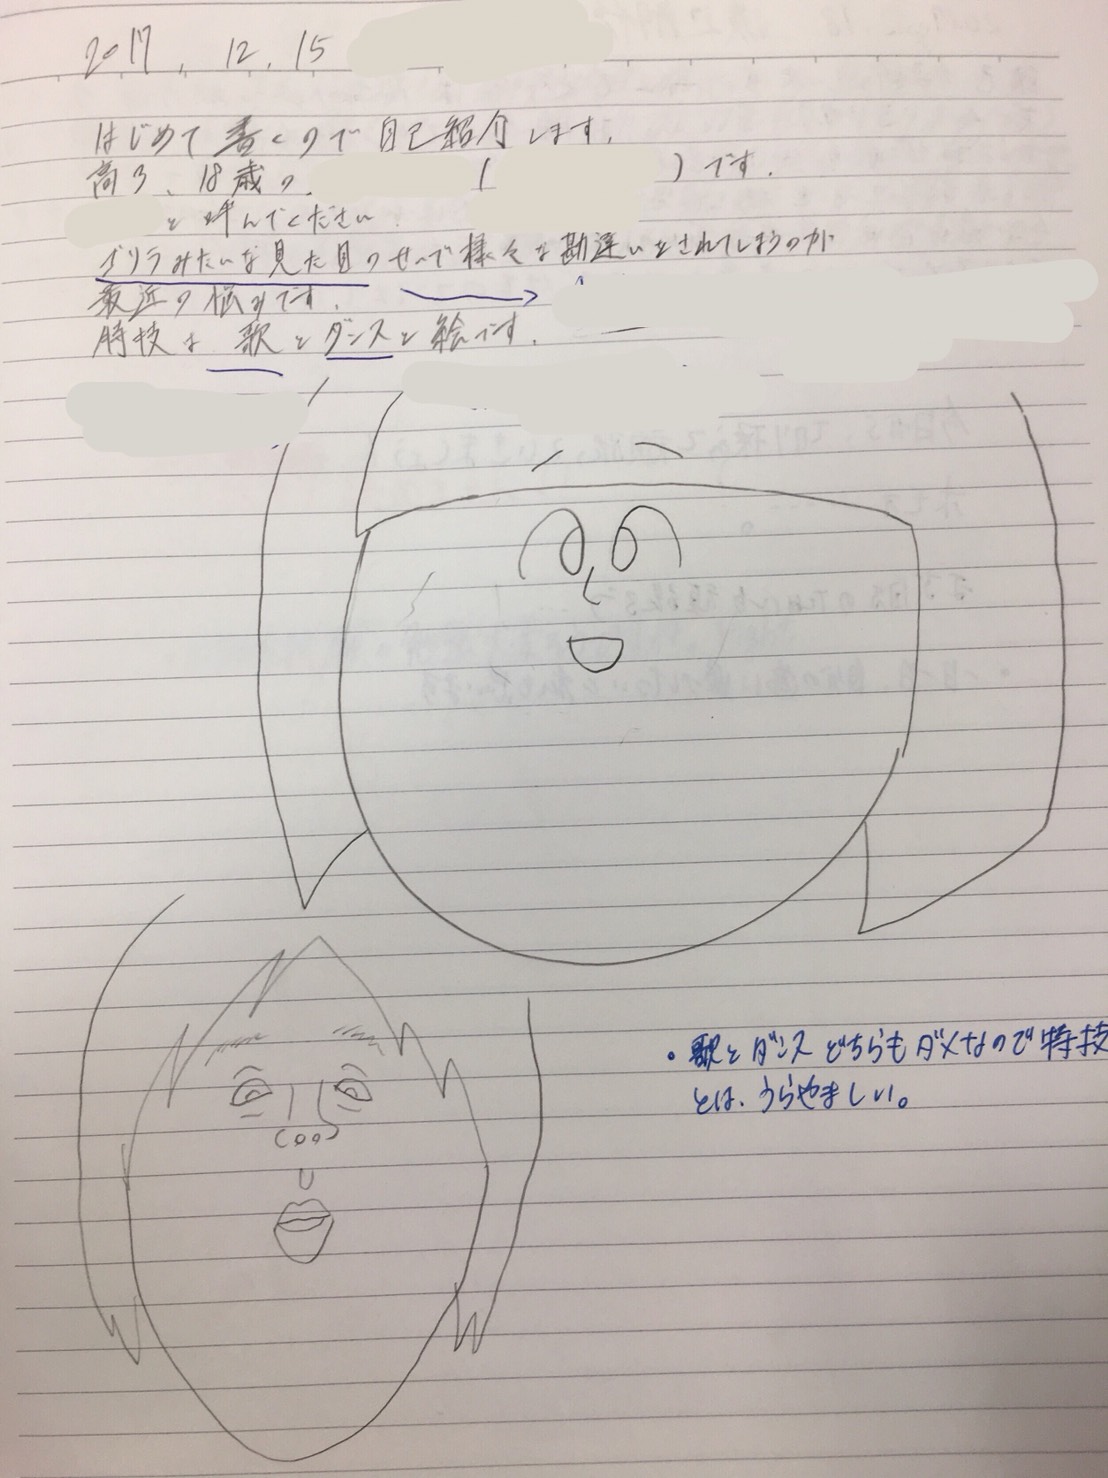 2017. 12. 15
はじめて書くので自己紹介します.
高3、18歳の ( )です.
と呼んでください.
ゴリラみたいな見た目のせいで様々な勘違いをされてしまうのが
最近の悩みです.
特技は 歌とダンスと絵です.
・歌とダンスどちらもダメなので特技
とは、うらやましい。